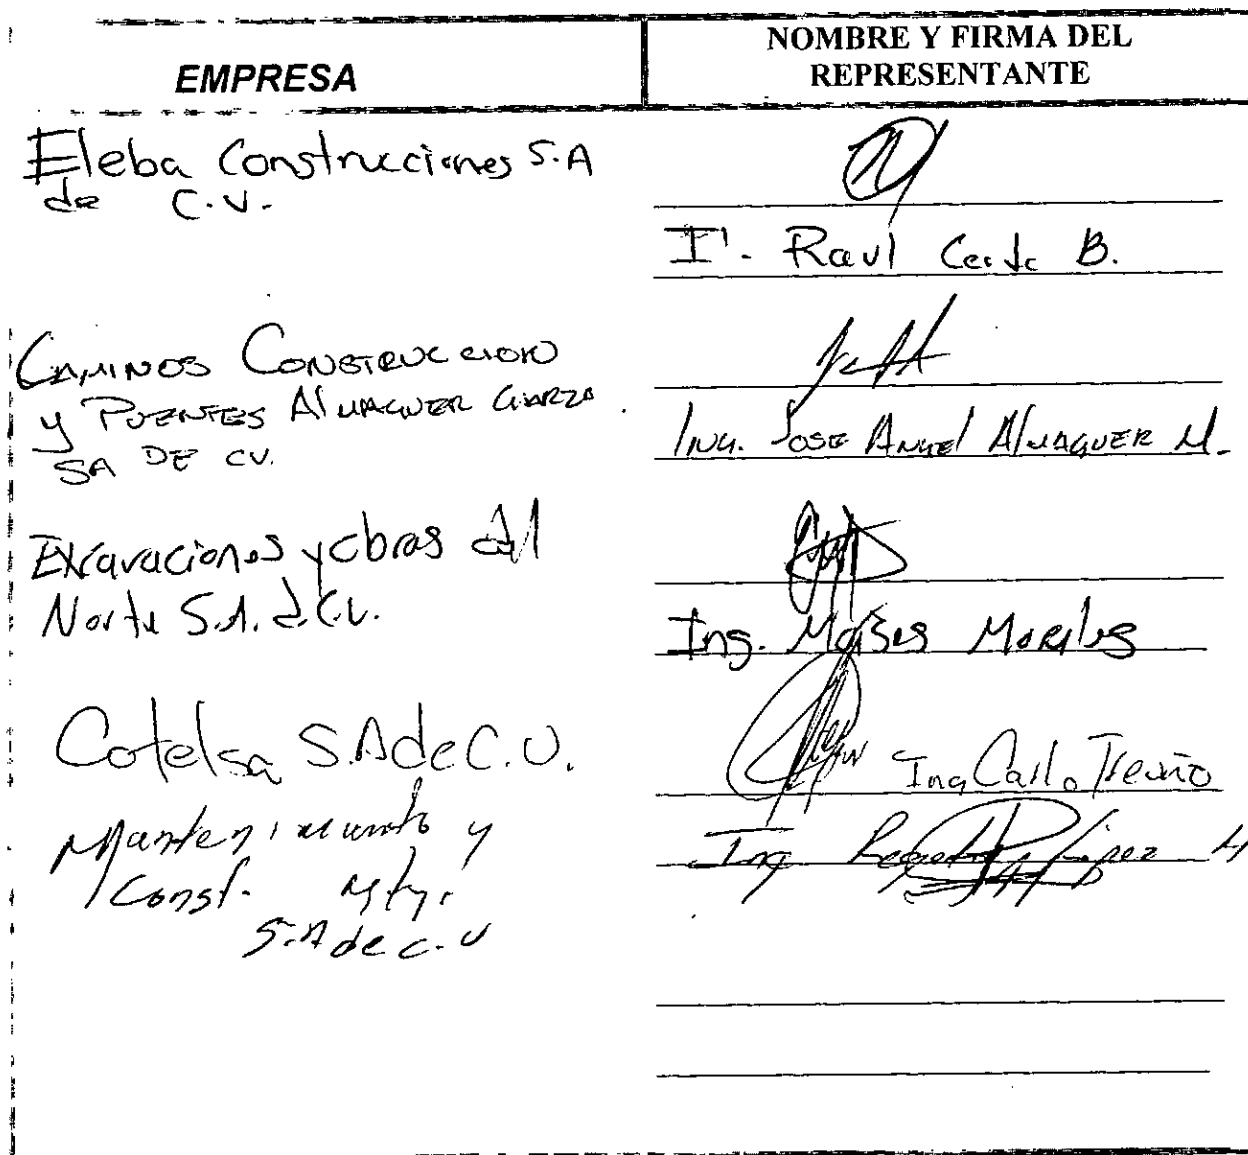 EMPRESA
NOMBRE Y FIRMA DEL
REPRESENTANTE
Eleba Construcciones S.A
de C.V.
I. Raul Cerda B.
CAMINOS CONSTRUCCION
y PUENTES AlMAGUER GARZA
SA DE CV.
ING. JOSE ANGEl AlMAGUER M.
Excavaciones y obras del
Norte S.A. de C.V.
Ing. Moises Morales
Cotelsa S.A de C.V.
Ing Carlo Treviño
Mantenimiento y
Const. Mty.
S.A de C.V
Ing López